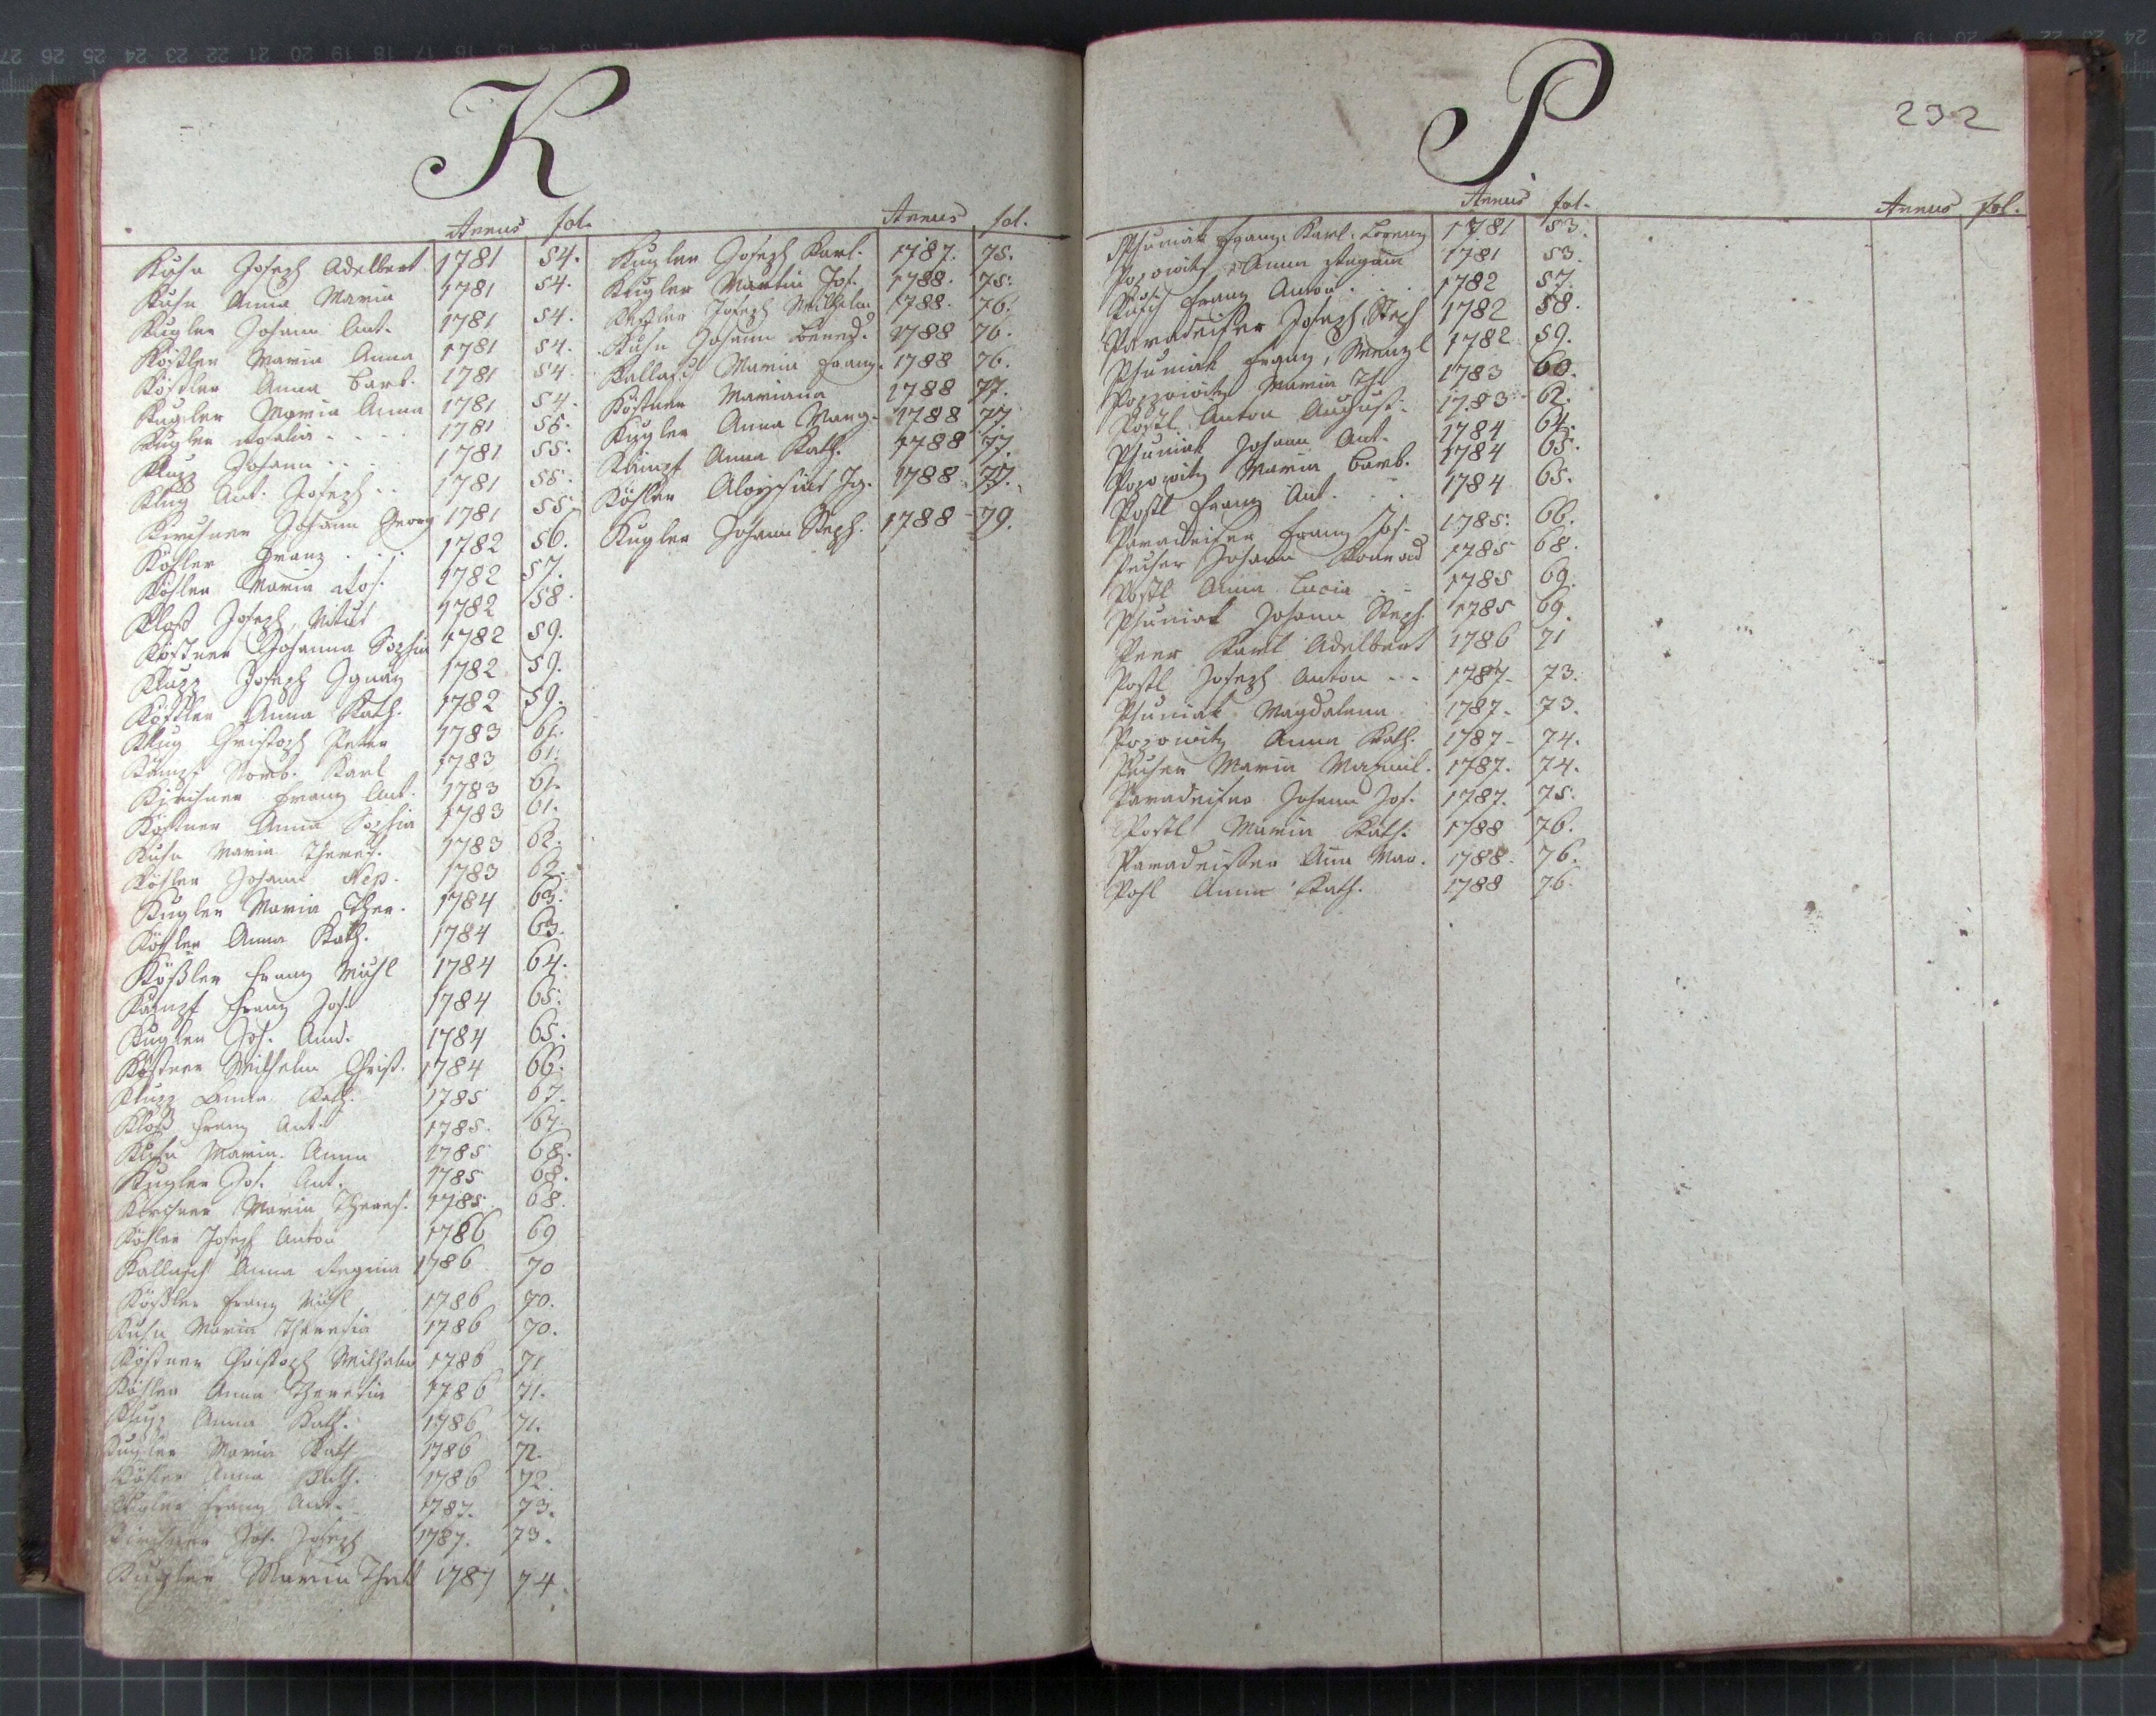 K
Annus fol.
Kuhn Joseph Adelbert 1781 54.
Kuhn Anna Maria 1781 54.
Kugler Johann Ant. 1781 54.
Kößler Maria Anna 1781 54.
Kößler Anna Barb. 1781 54
Kugler Maria Anna 1781 54.
Kugler Rosalia 1781 55.
Klupp Johann 1781 55.
Klug Ant. Joseph 1781 55.
Kirchner Johann Georg 1781 55.
Köhler Franz 1782 56.
Köhler Maria Ros. 1782 57.
Kloß Joseph, Vitus 1782 58.
Köstner Johanna Sophia 1782 59.
Klupp Joseph Ignatz 1782 59.
Kößler Anna Kath. 1782 59.
Klug Christoph Peter 1783 61.
Kämpf Norb. Karl 1783 61.
Kirchner Franz Ant. 1783 61.
Köstner Anna Sophia 1783 61.
Kuhn Maria Theres. 1783 62.
Köhler Johann Nep. 1783 62.
Kugler Maria Ther. 1784 63.
Köhler Anna Kath. 1784 63.
Kößler Franz Michl 1784 64.
Kämpf Franz Jos. 1784 65.
Kugler Jos. And. 1784 65.
Köstner Wilhelm Christ. 1784 66.
Klupp Anna Kath. 1785 67.
Kloß Franz Ant. 1785. 67.
Kuhn Maria Anna 1785 68.
Kugler Jos. Ant. 1785 68.
Kirchner Maria Theres. 1785 68.
Köhler Joseph Anton 1786 69
Kallasch Anna Regina 1786 70
Kößler Franz Michl 1786 70.
Kuhn Maria Theresia 1786 70.
Köstner Christoph Wilhelm 1786 71
Köhler Anna Theresia 1786 71.
Klupp Anna Kath. 1786 71.
Kugler Maria Kath 1786 72.
Köhler Anna Kath. 1786 72.
Kugler Franz Ant. 1787. 73.
Kirchner Joh. Joseph 1787. 73.
Kugler Maria 1787 74.
Annus fol.
Kugler Joseph Karl. 1787. 75.
Kugler Martin Jos. 1788. 75.
Joseph Wilhelm 1788. 76.
Kuhn Johann Bened. 1788 76.
Kallasch Maria Franz. 1788 76.
Köstner Mariana 1788 77.
Kugler Anna Marg. 1788 77.
Kämpf Anna Kath. 1788 77.
Köhler Aloysius Ig. 1788 77.
Kugler Johann Steph. 1788 79.
P
232
Annus fol.
Annus fol.
Franz Karl Lorenz 1781 53.
Popowitz Anna Regina 1781 53.
Franz Anton 1782 57.
Paradeiser Joseph, Steph 1782 58.
Franz, Wenzl 1782 59.
Maria Th. 1783 60.
Postl Anton August. 1783 62.
Johann Ant. 1784 64.
Popowitz Maria Barb. 1784 65.
Postl Franz Ant. 1784 65.
Paradeiser Franz Jos. 1785. 66.
Pucher Johann Konrad 1785 68.
Postl Anna Lucia 1785 69.
Johann Steph. 1785 69.
Peer Karl Adelbert 1786 71
Postl Joseph Anton 1787. 73.
Magdalena 1787. 73.
Popowitz Anna Kath. 1787. 74.
Pucher Maria Maximil. 1787. 74.
Paradeiser Johann Jos. 1787. 75.
Postl Maria Kath. 1788 76.
Paradeisser Anna Mar. 1788. 76.
Pohl Anna Kath. 1788 76.